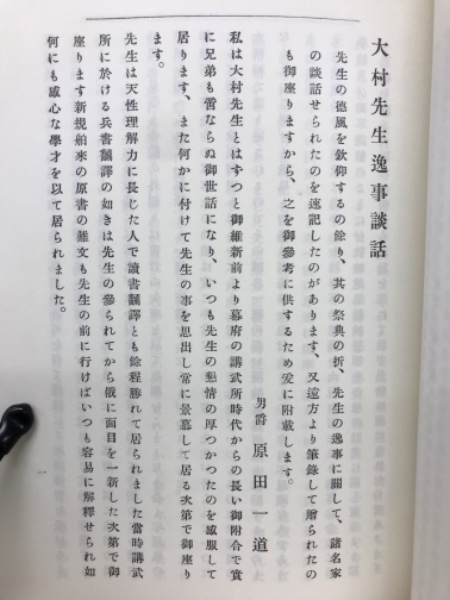 大村先生逸事談話
先生の德風を欽仰するの餘り、其の祭典の折、先生の逸事に關して、諸名家
の談話せられたのを速記したのがあります、又遠方より筆錄して贈られたの
も御座りますから、之を御參考に供するため爰に附載します。
男爵 原田一道
私は大村先生とはずつと御維新前より幕府の講武所時代からの長い御附合で實
に兄弟も啻ならぬ御世話になり、いつも先生の懇情の厚つかつたのを感服して
居ります、また何かに付けて先生の事を思出し常に景慕して居る次第で御座り
ます。
先生は天性理解力に長じた人で讀書飜譯とも餘程勝れて居られました當時講武
所に於ける兵書飜譯の如きは先生の參られてから俄に面目を一新した次第で御
座ります新規舶來の原書の難文も先生の前に行けばいつも容易に解釋せられ如
何にも感心な學才を以て居られました。
一